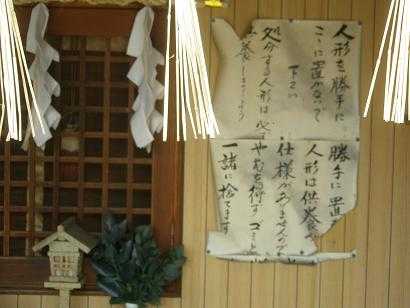 人形を勝手に
ここに置かないで
下さい
処分する人形は必ず
供養しましょう
勝手に置
人形は供養
仕様がありませんので
やむを得ず ゴミと
一諸に捨てます